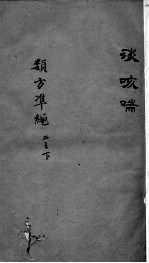 淡咳喘
類方準繩二之下